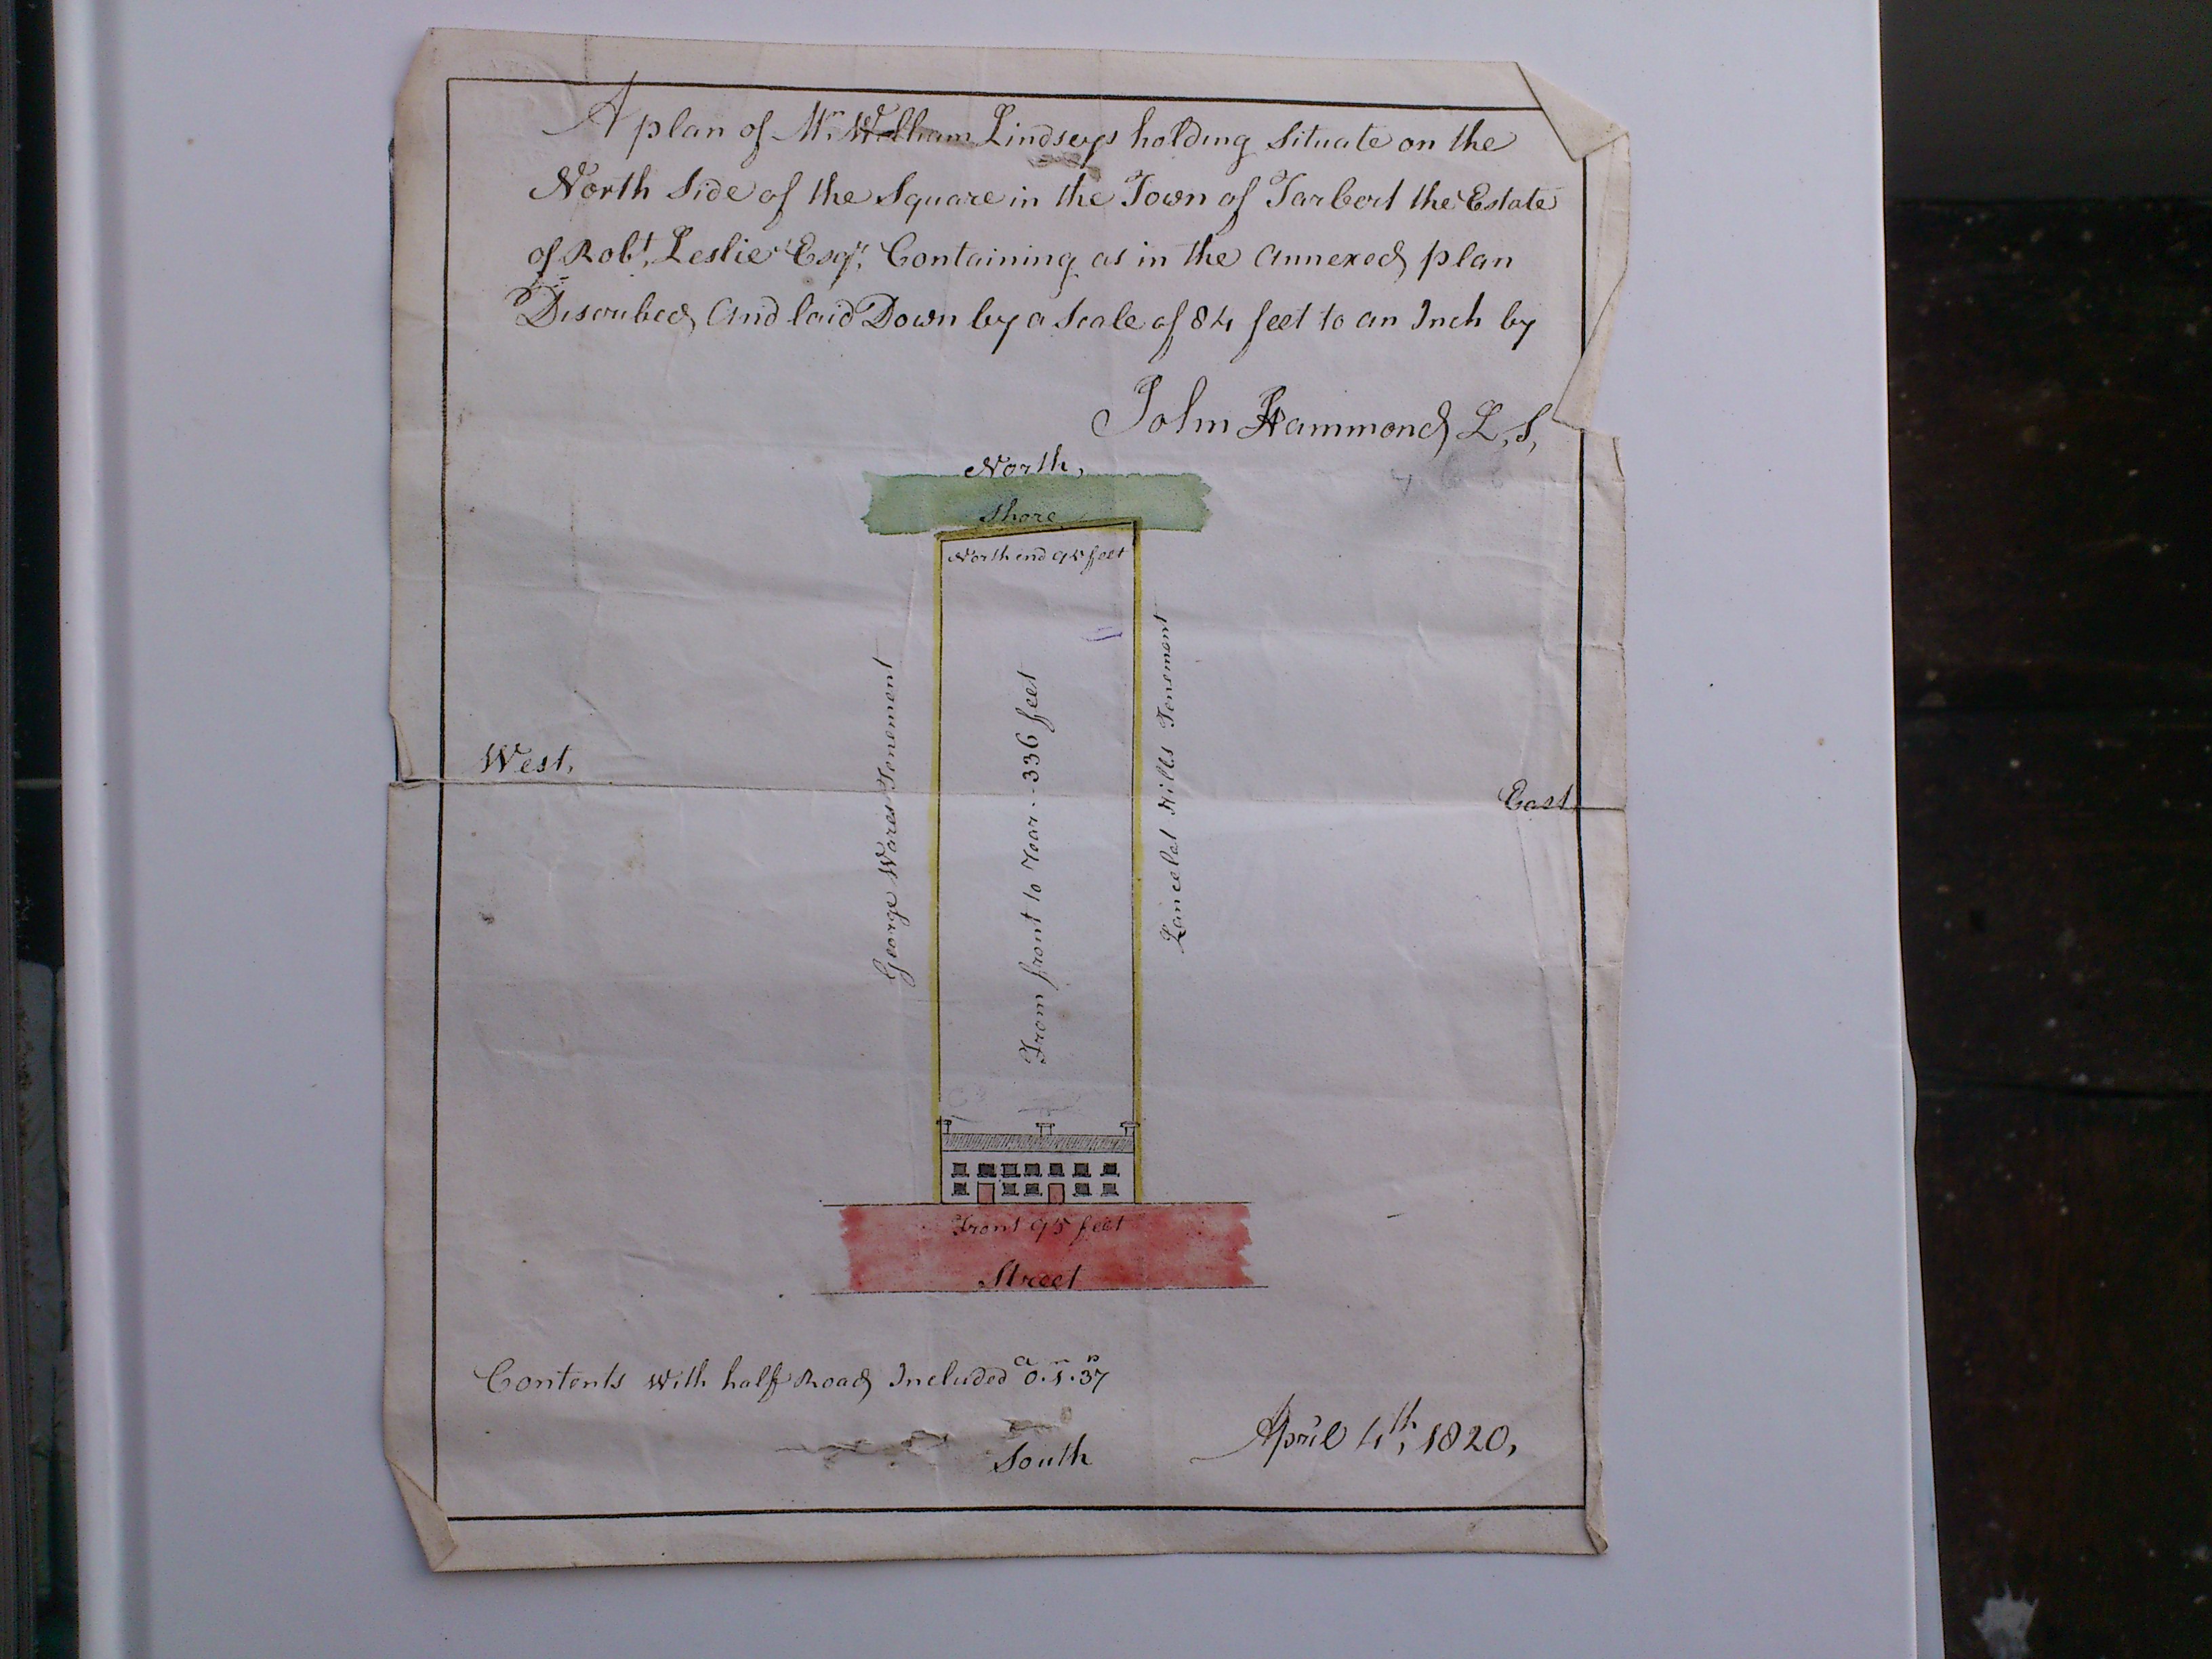 A plan of Mr. William Lindseys holding Situate on the
North Side of the Square in the Town of Tarbert the Estate
of Robt. Leslie Esqr. Containing as in the annexed plan
Discribed And laid Down by a Scale of 84 feet to an Inch by
John Hammond L.S,
North,
Shore
North end 95 feet
George Wares Tenement
From front to rear -- 336 feet
Lancelot Hills Tenement
West,
East
Front 95 feet
Street
Contents with half Road Included a0. r1. p37
South
April 4th, 1820,